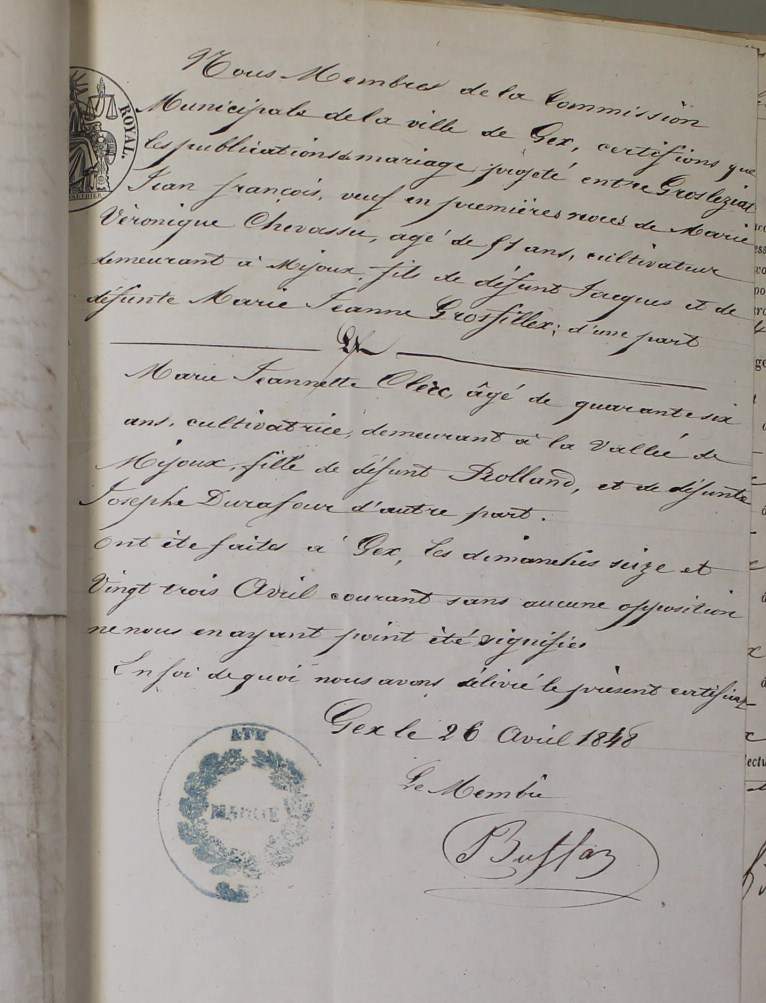 Nous Membres de la Commission
Municipale de la ville de Gex, certifions que
les publications de mariage projeté entre Grosleziat
Jean françois, veuf en premières noces de Marie
Véronique Chevassu, agé de 51 ans, cultivateur
demeurant à Mijoux, fils de défunt Jacques et de
défunte Marie Jeanne Grosfillex; d'une part
Et
Marie Jeannette Clerc, âgé de quarante six
ans, cultivatrice, demeurant à la Vallée de
Mijoux, fille de défunt Rolland, et de défunte
Josephe Durafour d'autre part.
Ont été faites à Gex, les dimanches seize et
Vingt trois Avril courant sans aucune opposition
ne nous en ayant point été signifiée
En foi de quoi nous avons délivré le présent certificat
Gex le 26 Avril 1848
Le Membre
ROYAL.
MAIRIE